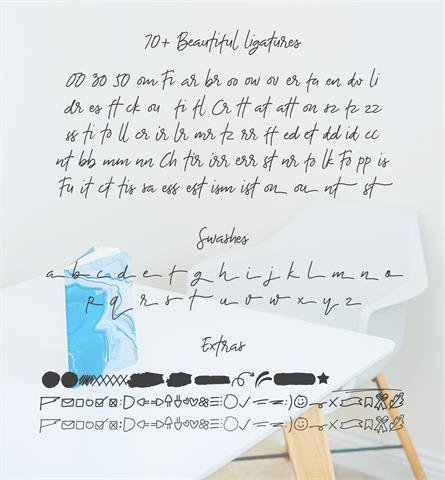 70+ Beautiful ligatures
00 30 50 om Fi ar br oo ow ov er ta en do li
dr es ft ck ou fi fl Cr ff at att on sz tz zz
ss ti to ll cr ir lr mr tz rr ff ed et dd id cc
nt bb mm nn Ch tir irr err st nr to lk Fo pp is
Fu it ct tis sa ess est ism ist on ou nt st
Swashes
a b c d e f g h i j k l m n o
p q r s t u v o w x y z
Extras